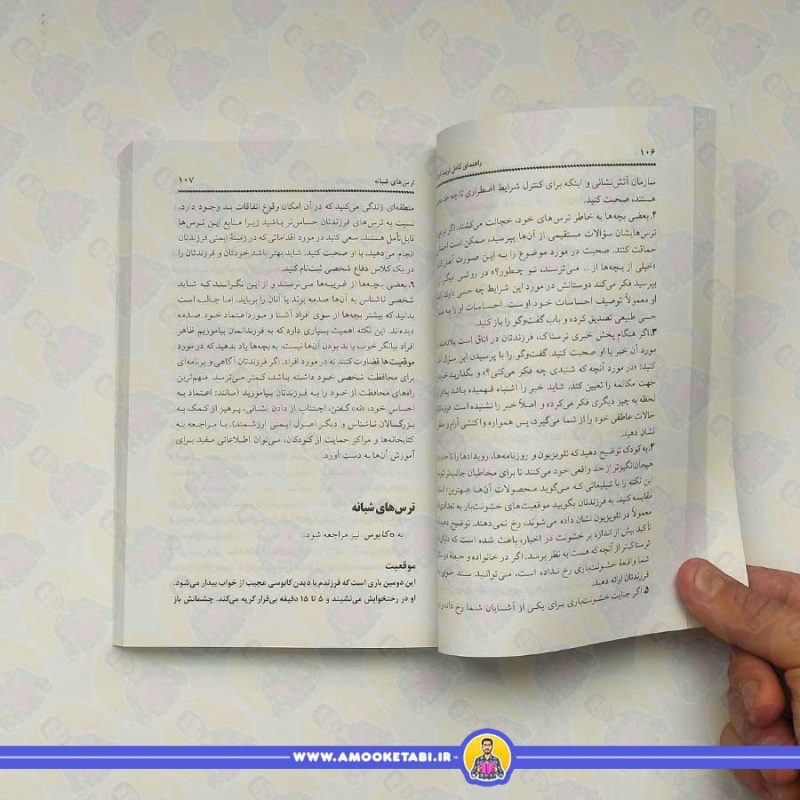 ۱۰۶
راهنمای کامل تربیت
سازمان آتش‌نشانی و اینکه برای کنترل شرایط اضطراری تا چه حد
هستند، صحبت کنید.
۲. بعضی بچه‌ها به خاطر ترس‌های خود، خجالت می‌کشند. اگر
ترس‌هایشان سؤالات مستقیمی از آن‌ها بپرسید، ممکن است
حماقت کنند. صحبت در مورد موضوع را به این صورت آغاز
«خیلی از بچه‌ها از... می‌ترسند، تو چطور؟» در روشی دیگر
بپرسید فکر می‌کند دوستانش در مورد این شرایط چه حسی
او معمولاً توصیف احساسات خود اوست. احساسات او را به
حسی طبیعی تصدیق کرده و باب گفت‌وگو را باز کنید.
۳. اگر هنگام پخش خبری ترسناک، فرزندتان در اتاق است
مورد آن خبر با او صحبت کنید. گفت‌وگو را با پرسیدن این سؤال
کنید: «در مورد آنچه که شنیدی چه فکر می‌کنی؟» و بگذارید
جهت مکالمه را تعیین کند. شاید خبر را اشتباه فهمیده باشد یا
لحظه به چیز دیگری فکر می‌کرده و اصلاً خبر را نشنیده است
حالات عاطفی خود را از شما می‌گیرد، پس همواره واکنشی آرام و
نشان دهید.
۴. به کودک توضیح دهید که تلویزیون و روزنامه‌ها، رویدادها را
هیجان‌انگیزتر از حد واقعی خود می‌کنند تا برای مخاطبان جالب‌تر
این نکته را با تبلیغاتی که می‌گوید محصولات آن‌ها بهترین
مقایسه کنید. به فرزندتان بگویید موقعیت‌های خشونت‌بار به تعدادی
معمولاً در تلویزیون نشان داده می‌شوند، رخ نمی‌دهند. توضیح دهید
تأکید بیش از اندازه بر خشونت در اخبار، باعث شده است که
ترسناک‌تر از آنچه که هست به نظر برسد. اگر در خانواده و حیطهٔ
شما واقعهٔ خشونت‌باری رخ نداده است، می‌توانید سند
فرزندتان ارائه دهید.
۵. اگر جنایت خشونت‌باری برای یکی از آشنایان شما رخ داده
ترس‌های شبانه
۱۰۷
منطقه‌ای زندگی می‌کنید که در آن امکان وقوع اتفاقات بد وجود دارد،
نسبت به ترس‌های فرزندتان حساس‌تر باشید زیرا منابع این ترس‌ها
قابل‌تأمل هستند. سعی کنید در مورد اقداماتی که در زمینهٔ ایمنی فرزندتان
انجام می‌دهید، با او صحبت کنید. شاید بهتر باشد خودتان و فرزندتان را
در یک کلاس دفاع شخصی ثبت‌نام کنید.
۶. بعضی بچه‌ها از غریبه‌ها می‌ترسند و از این نگرانند که شاید
شخصی ناشناس به آن‌ها صدمه بزند یا آنان را برباید. اما جالب است
بدانید که بیشتر بچه‌ها از سوی افراد آشنا و مورداعتماد خود صدمه
دیده‌اند. این نکته اهمیت بسیاری دارد که به فرزندانمان بیاموزیم ظاهر
افراد بیانگر خوب یا بد بودن آن‌ها نیست. به بچه‌ها یاد بدهید که در مورد
موقعیت‌ها قضاوت کنند نه در مورد افراد. اگر فرزندتان آگاهی و برنامه‌ای
برای محافظت شخصی خود داشته باشد، کمتر می‌ترسد. مهم‌ترین
راه‌های محافظت از خود را به فرزندتان بیاموزید (مانند: اعتماد به
احساس خود، «نه» گفتن، اجتناب از دادن نشانی، پرهیز از کمک به
بزرگسالان ناشناس و دیگر اصول ایمنی ارزشمند). با مراجعه به
کتابخانه‌ها و مراکز حمایت از کودکان، می‌توان اطلاعاتی مفید برای
آموزش آن‌ها به دست آورد.
ترس‌های شبانه
به «کابوس» نیز مراجعه شود.
موقعیت
این دومین باری است که فرزندم با دیدن کابوسی عجیب از خواب بیدار می‌شود.
او در رختخوابش می‌نشیند و ۵ تا ۱۵ دقیقه بی‌قرار گریه می‌کند. چشمانش باز
WWW.AMOOKETABI.IR